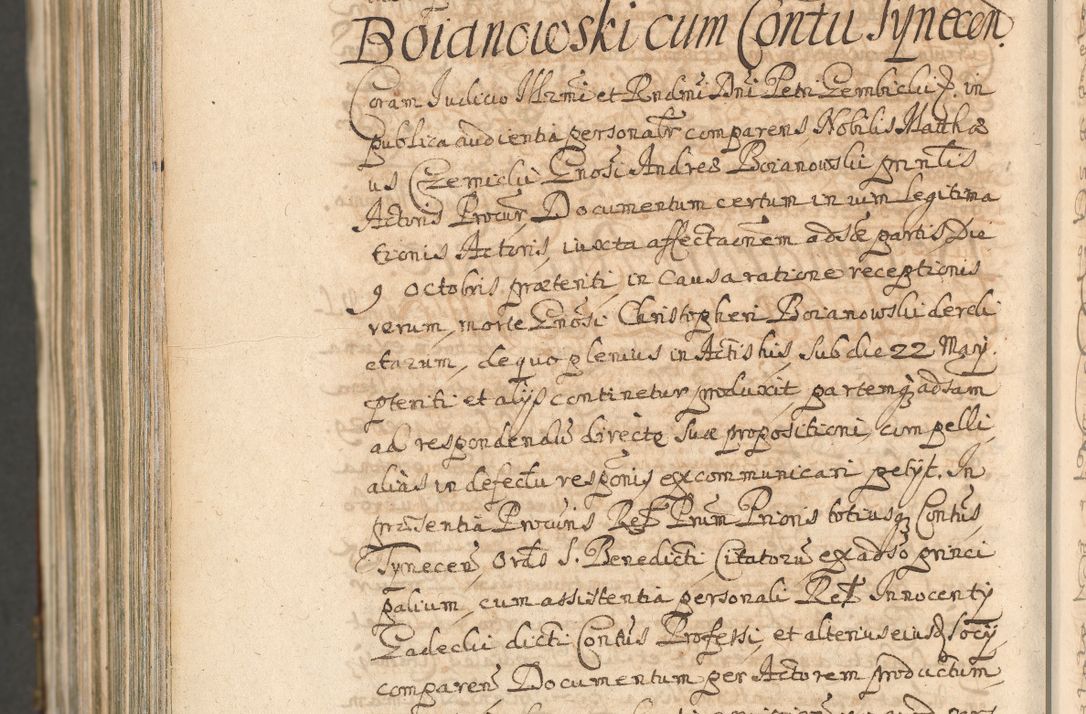 Boianowski cum Contu Tynecen.
Coram Iudicio Illrmi et Rndmi Dni Petri Gembicki E. in
publica audientia personalr comparens Nobilis Matthæ
us Czernicki Gnosi Andreæ Boianowski prntis
Actoris Procur Documentum certum in vim legitima
tionis Actoris, iuxta affectaonem adsæ partis Die
9 Octobris præteriti, in Causa ratione receptionis
rerum, morte Gnosi Christopheri Boianowski dereli
ctarum, de quo plenius in Actis his, sub die 22 Maij
pteriti et alijs continetur produxit partemq adsam
ad respondendu directe suæ propositioni, compelli,
alias in defectu responis excommunicari petijt. In
præsentia Procuris Relg Prum Prioris totiusq Contus
Tynecen Ordis S. Benedicti Citatoru ex adso princi
palium, cum assistentia personali Relg Innocentij
Gadecki dicti Contus Professi, et alterius eiusd socij
comparen Documentum per Actorem productum